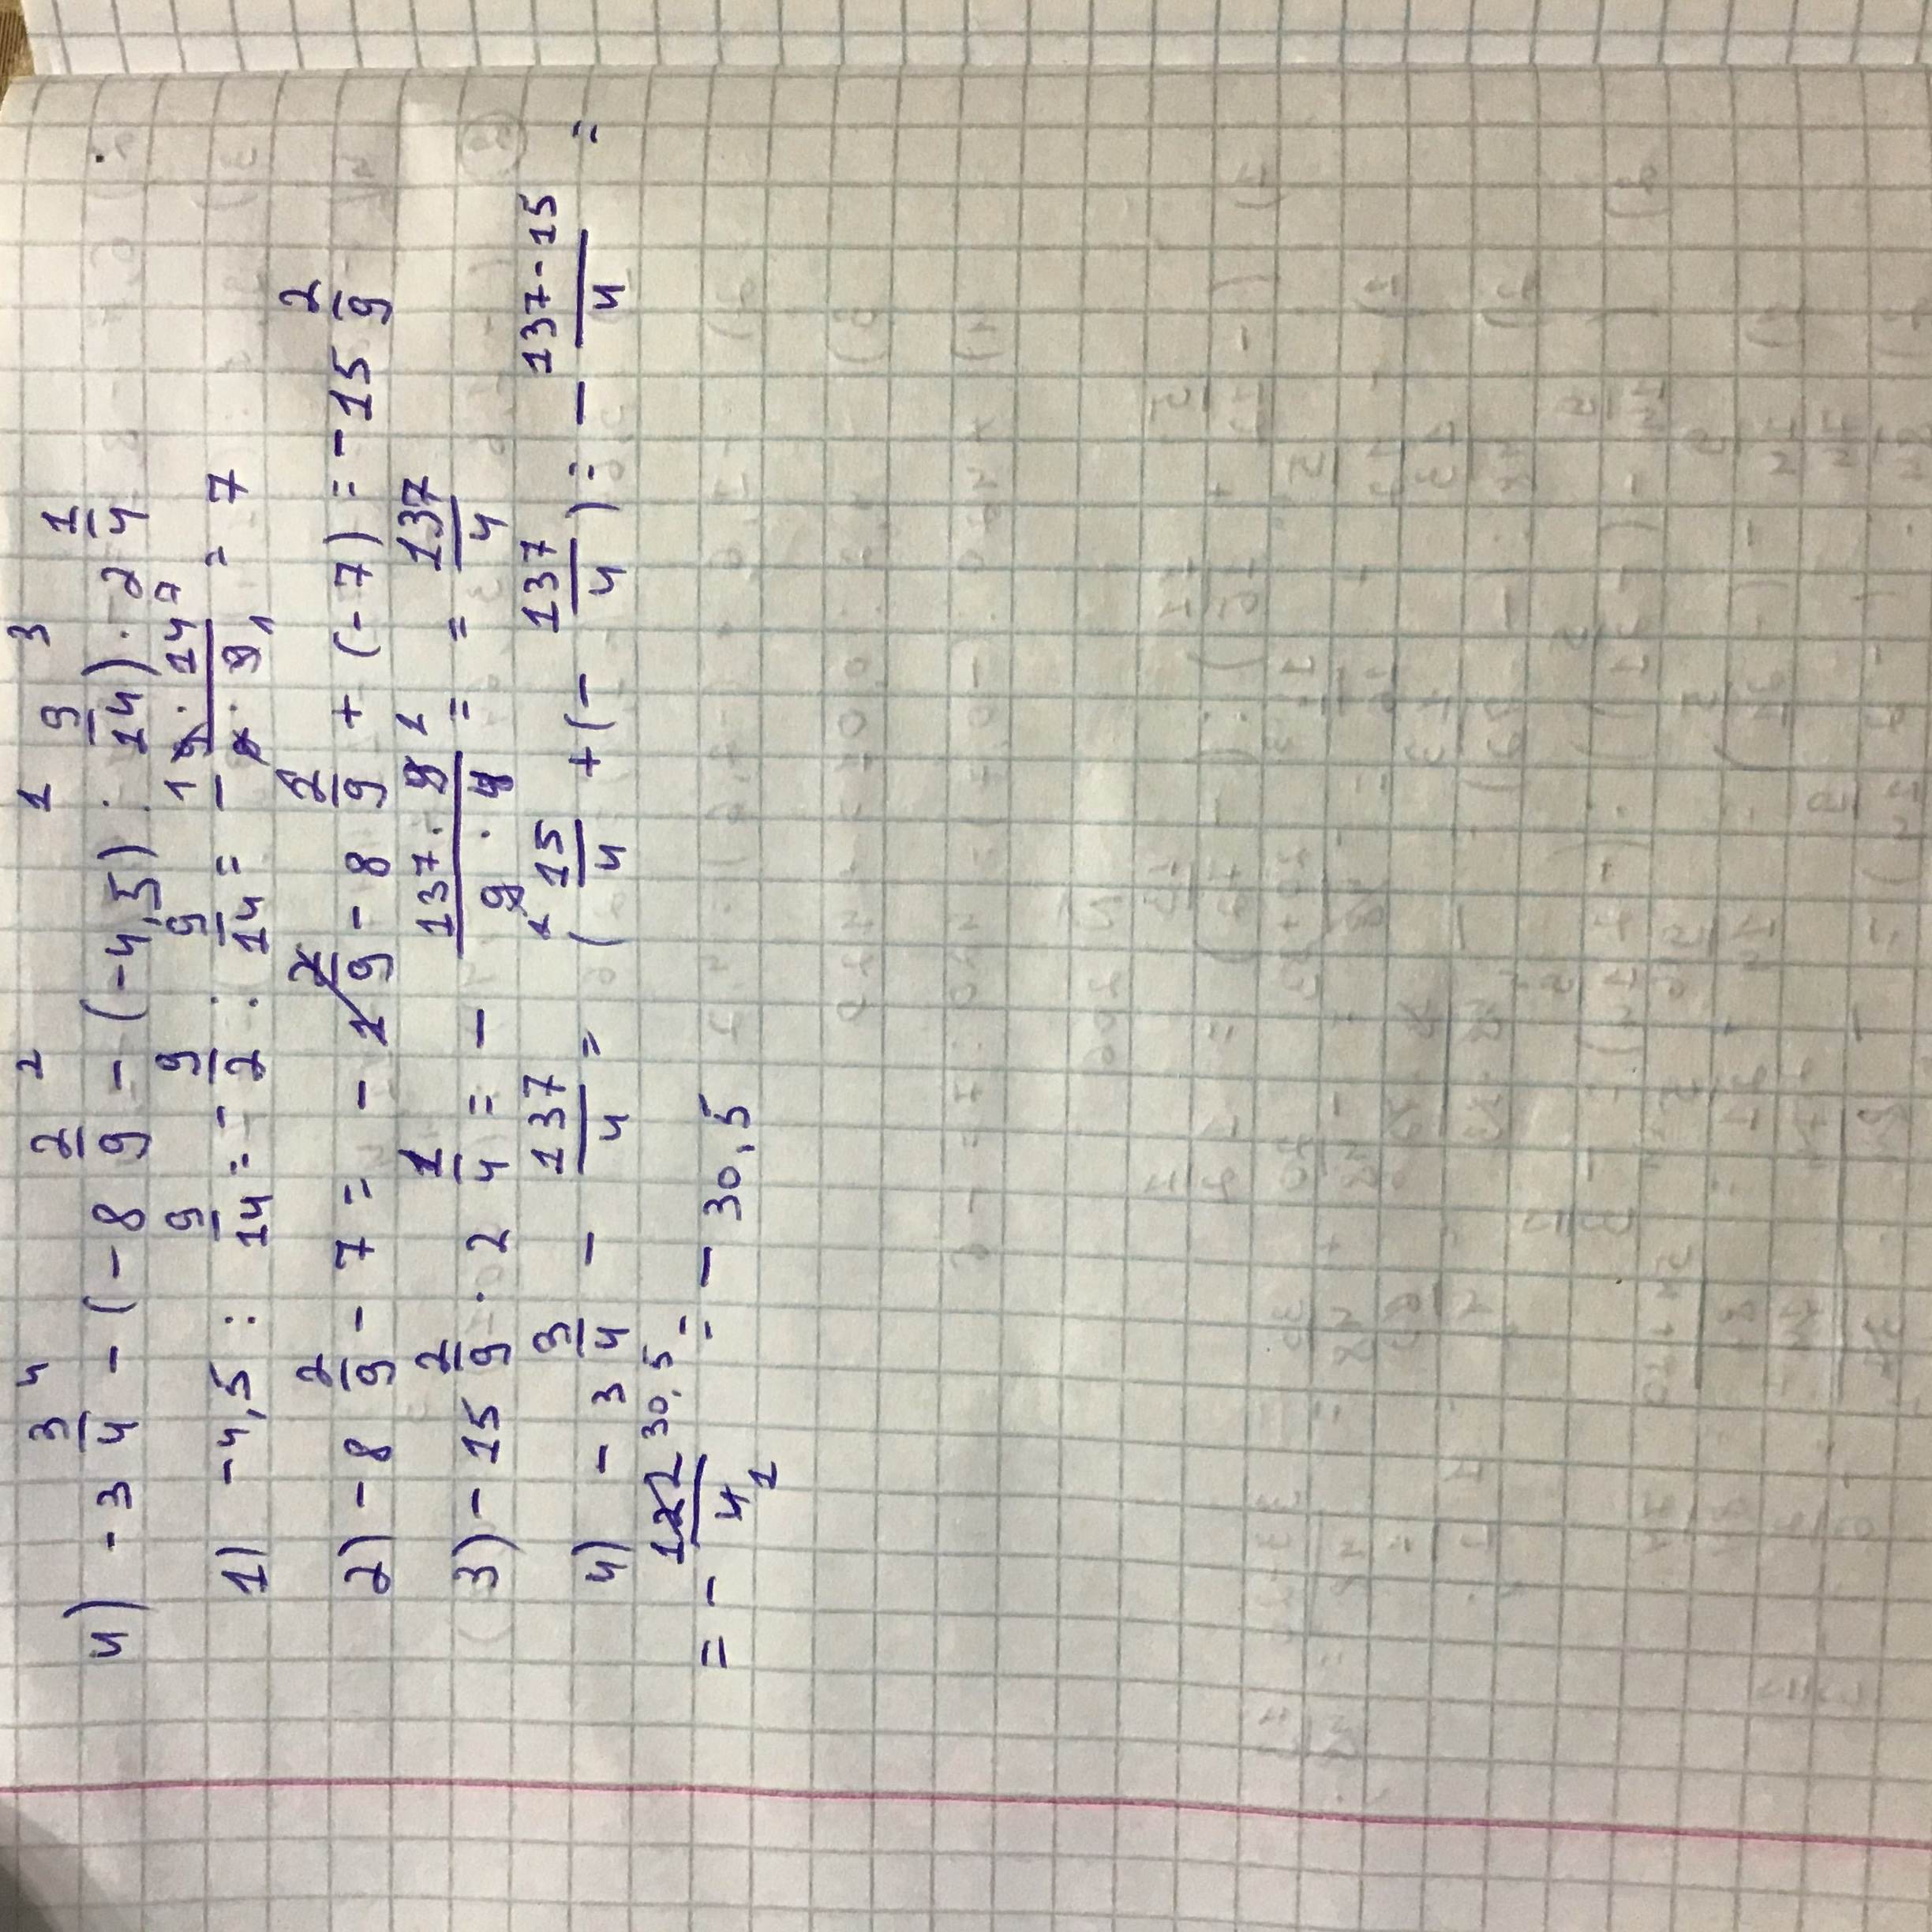 4) -3 3/4 - (-8 2/9 - (-4,5) : 9/14) · 2 1/4
1) -4,5 : 9/14 = -9/2 : 9/14 = - 9·14/2·9 = 7
2) -8 2/9 - 7 = - 8 2/9 + (-7) = -15 2/9
3) -15 2/9 · 2 1/4 = - 137·9/9·4 = = 137/4
4) -3 3/4 - 137/4 = (15/4 + (- 137/4) = - 137-15/4 =
= - 122/4 = - 30,5